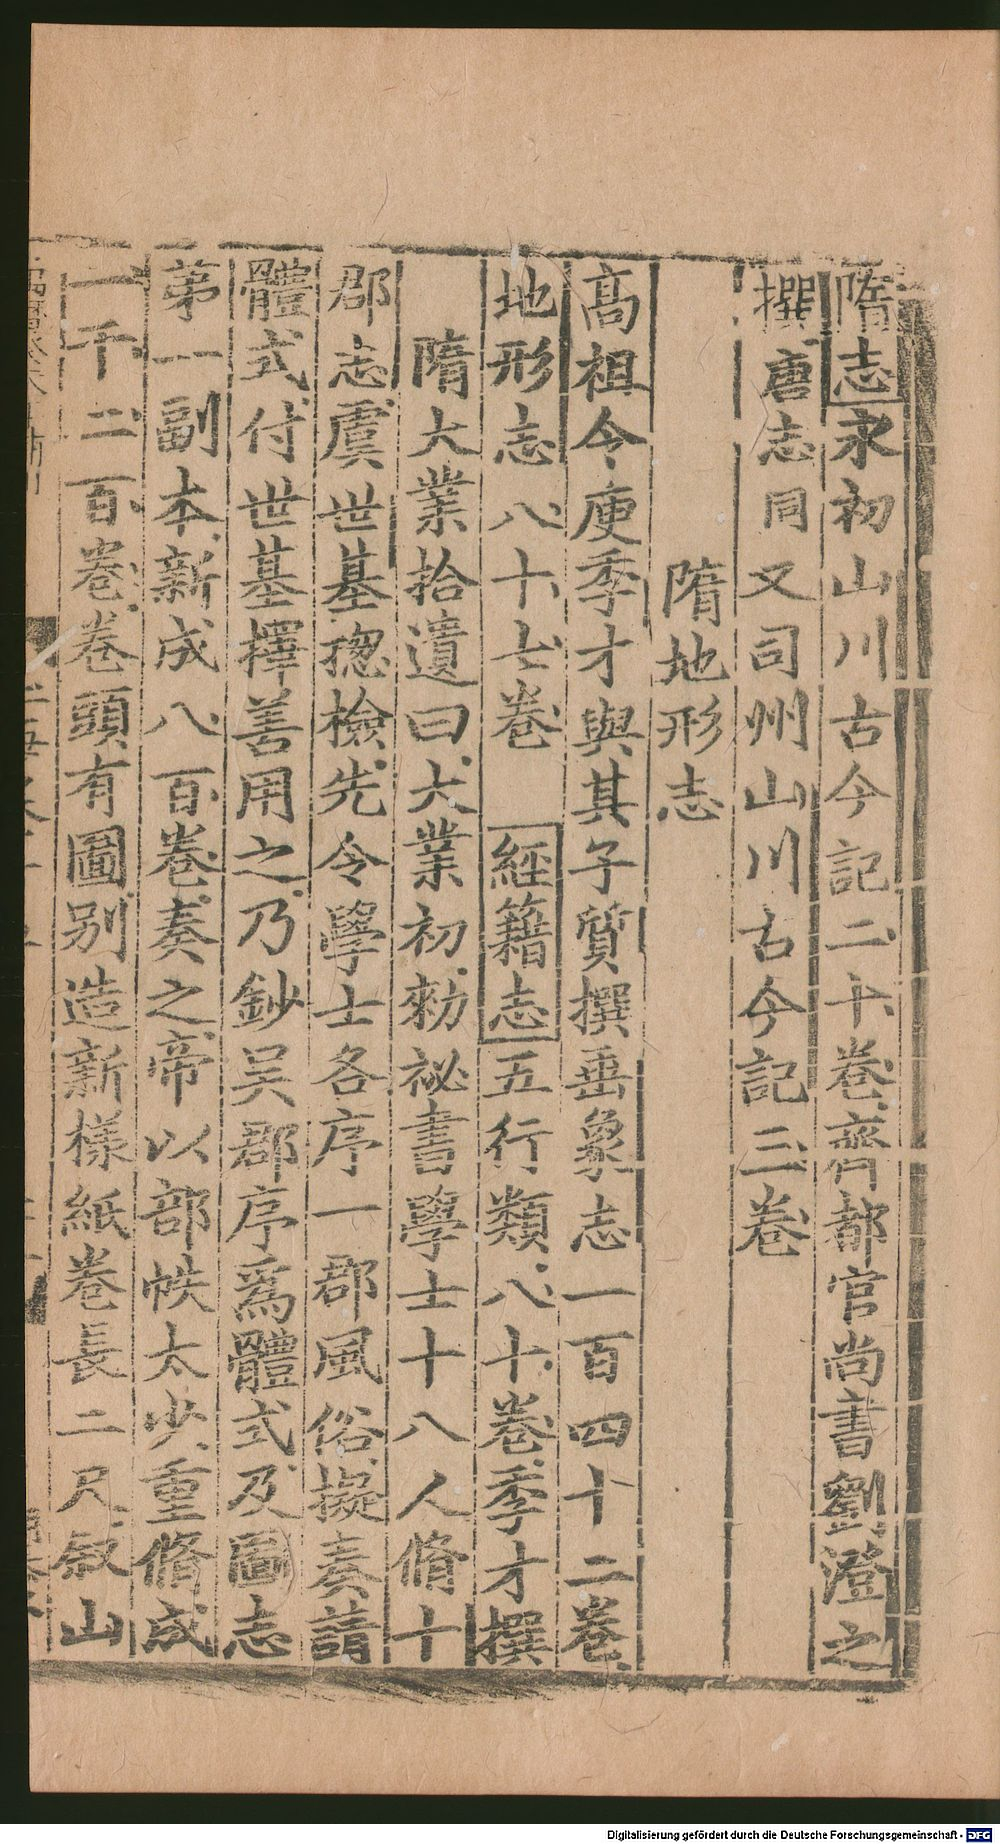 隋志永初山川古今記二十卷齊都官尚書劉澄之
撰唐志同又司州山川古今記三卷
隋地形志
高祖令庾季才與其子質撰垂象志一百四十二卷
地形志八十七卷 經籍志五行類八十卷季才撰
隋大業拾遺曰大業初勑祕書學士十八人脩十
郡志虞世基揔檢先令學士各序一郡風俗擬奏請
體式付世基擇善用之乃鈔吴郡序爲體式及圖志
第一副本新成八百卷奏之帝以部帙太少重脩成
一千二百卷卷頭有圖别造新樣紙卷長二尺叙山
Digitalisierung gefördert durch die Deutsche Forschungsgemeinschaft - DFG